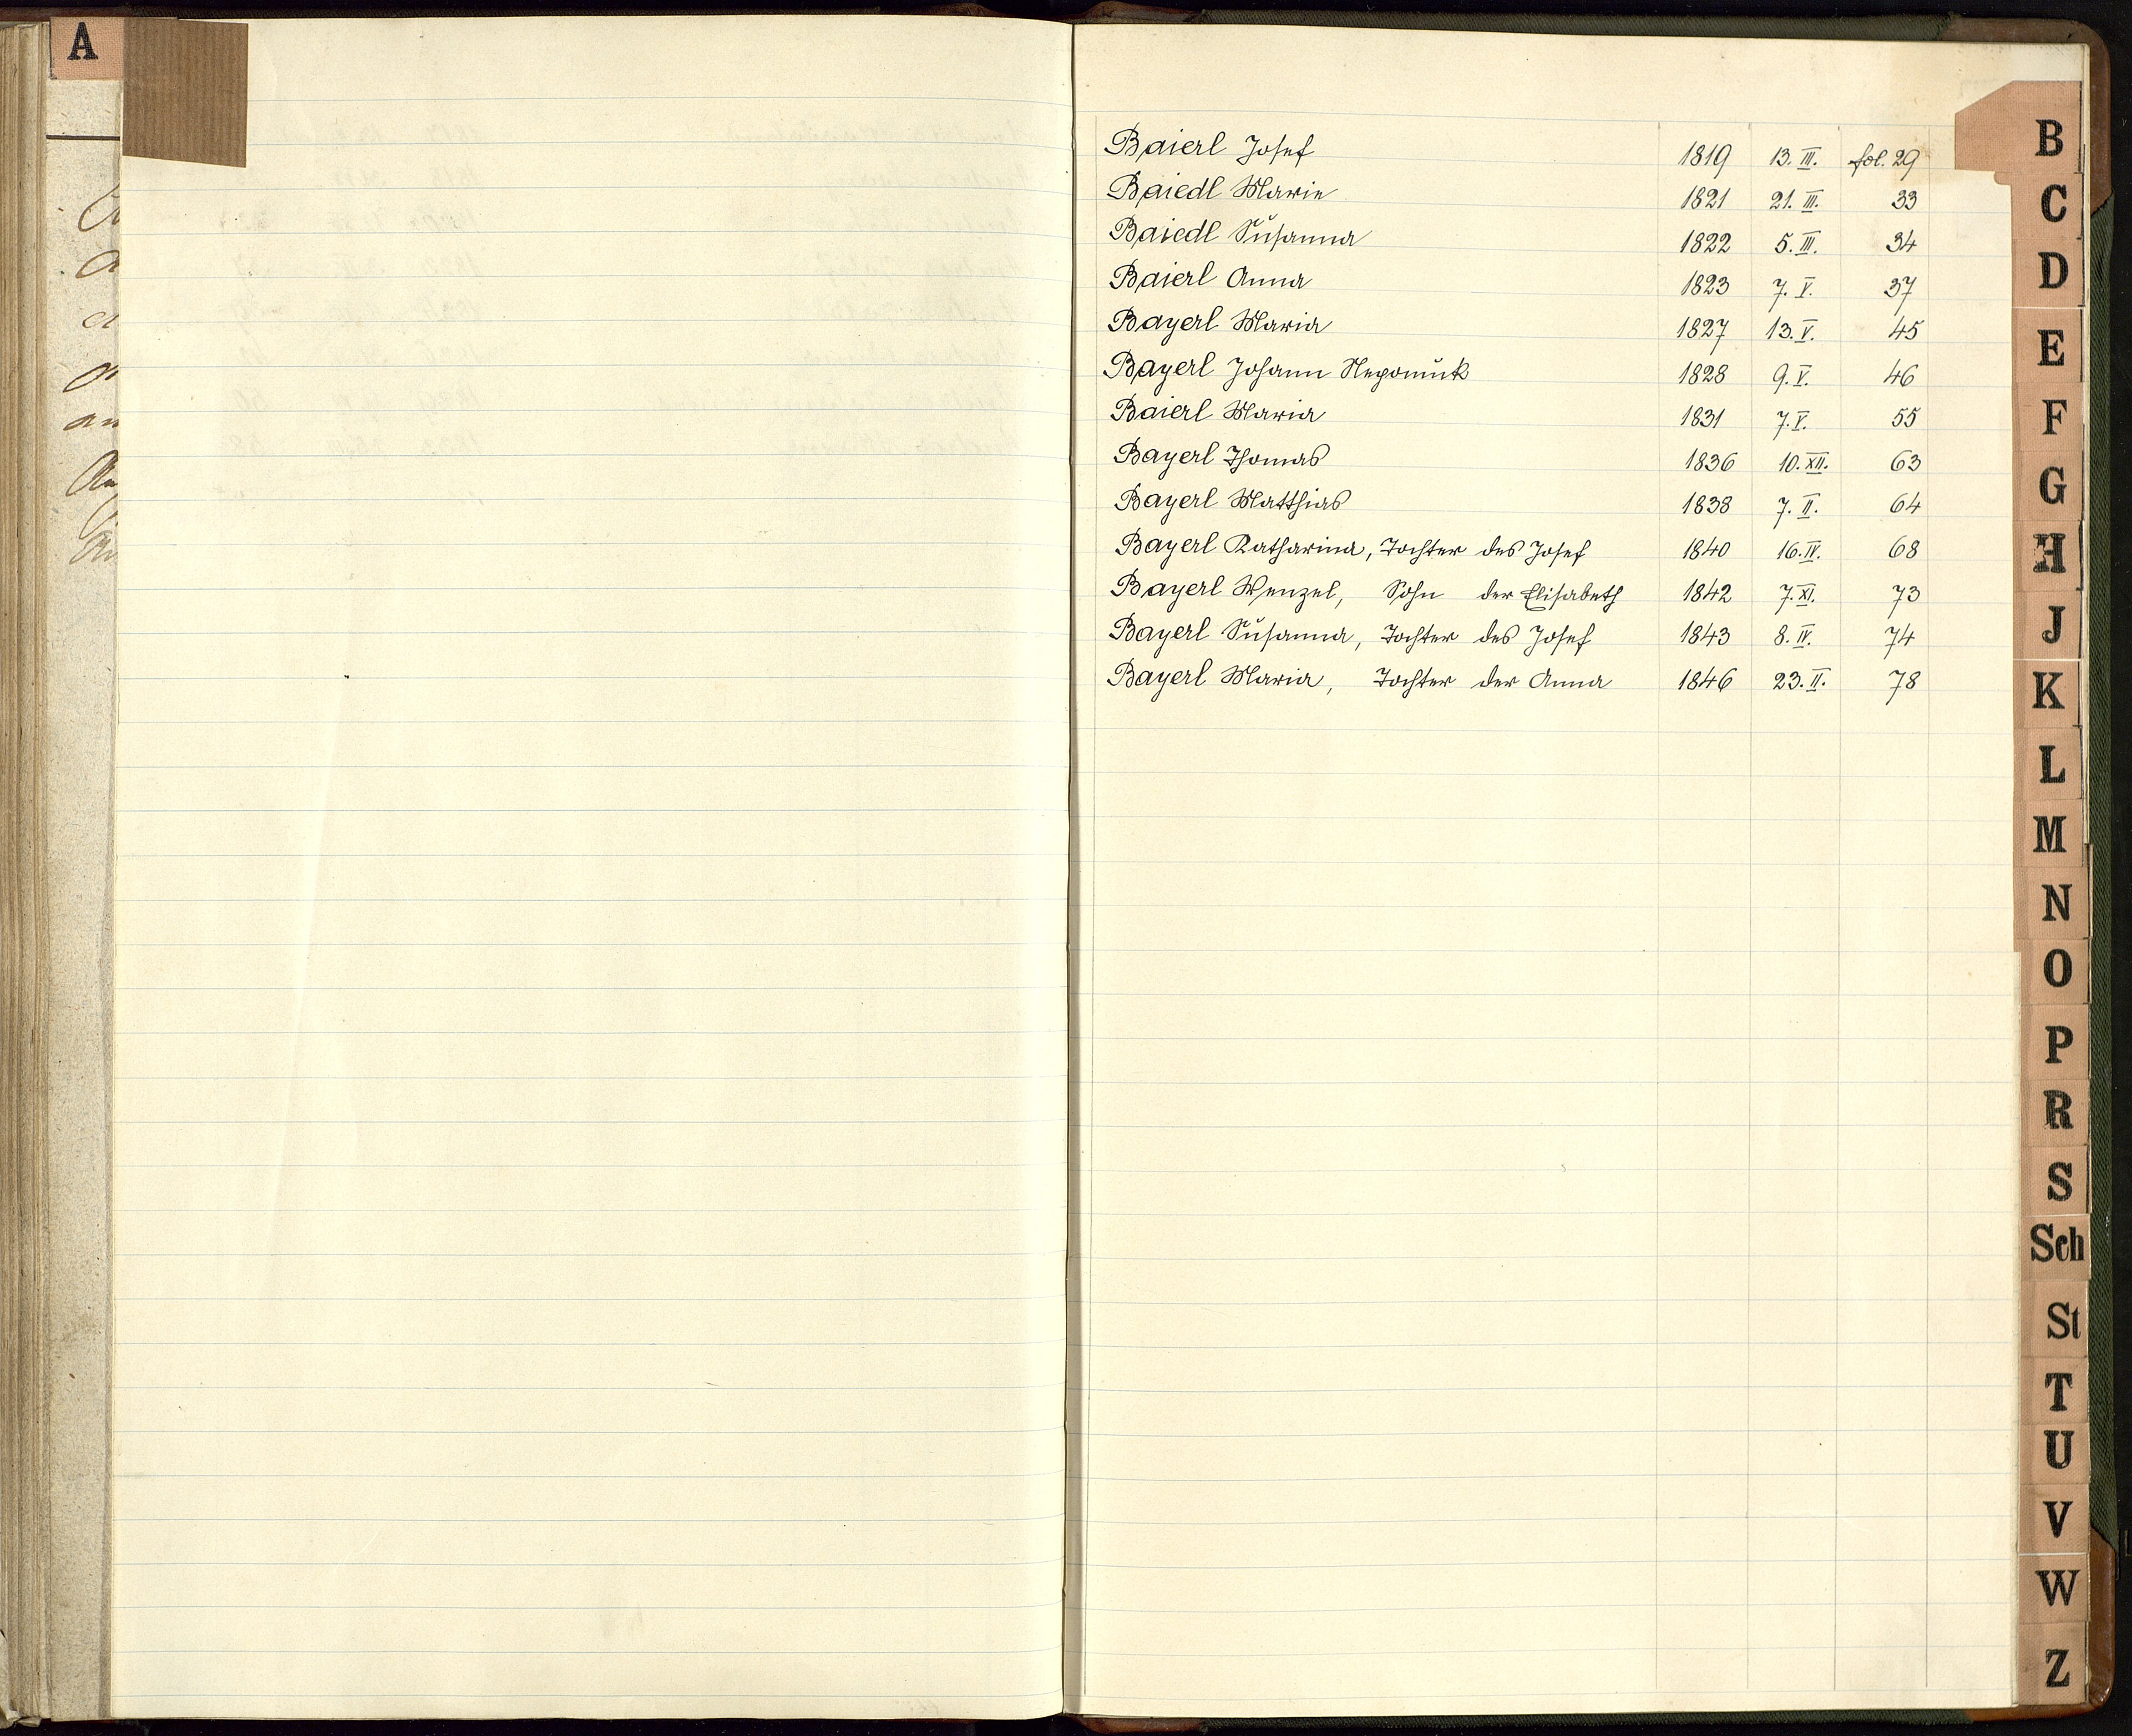 A
Baierl Josef 1819 13. III. fol. 29
Baiedl Marie 1821 21. III. 33
Baiedl Susanna 1822 5. III. 34
Baierl Anna 1823 7. V. 37
Bayerl Maria 1827 13. V. 45
Bayerl Johann Nepomuk 1828 9. V. 46
Baierl Maria 1831 7. V. 55
Bayerl Thomas 1836 10. XII. 63
Bayerl Matthias 1838 7. II. 64
Bayerl Katharina, Tochter des Josef 1840 16. IV. 68
Bayerl Wenzel, Sohn der Elisabeth 1842 7. XI. 73
Bayerl Susanna, Tochter des Josef 1843 8. IV. 74
Bayerl Maria, Tochter der Anna 1846 23. II. 78
B
C
D
E
F
G
H
J
K
L
M
N
O
P
R
S
Sch
St
T
U
V
W
Z